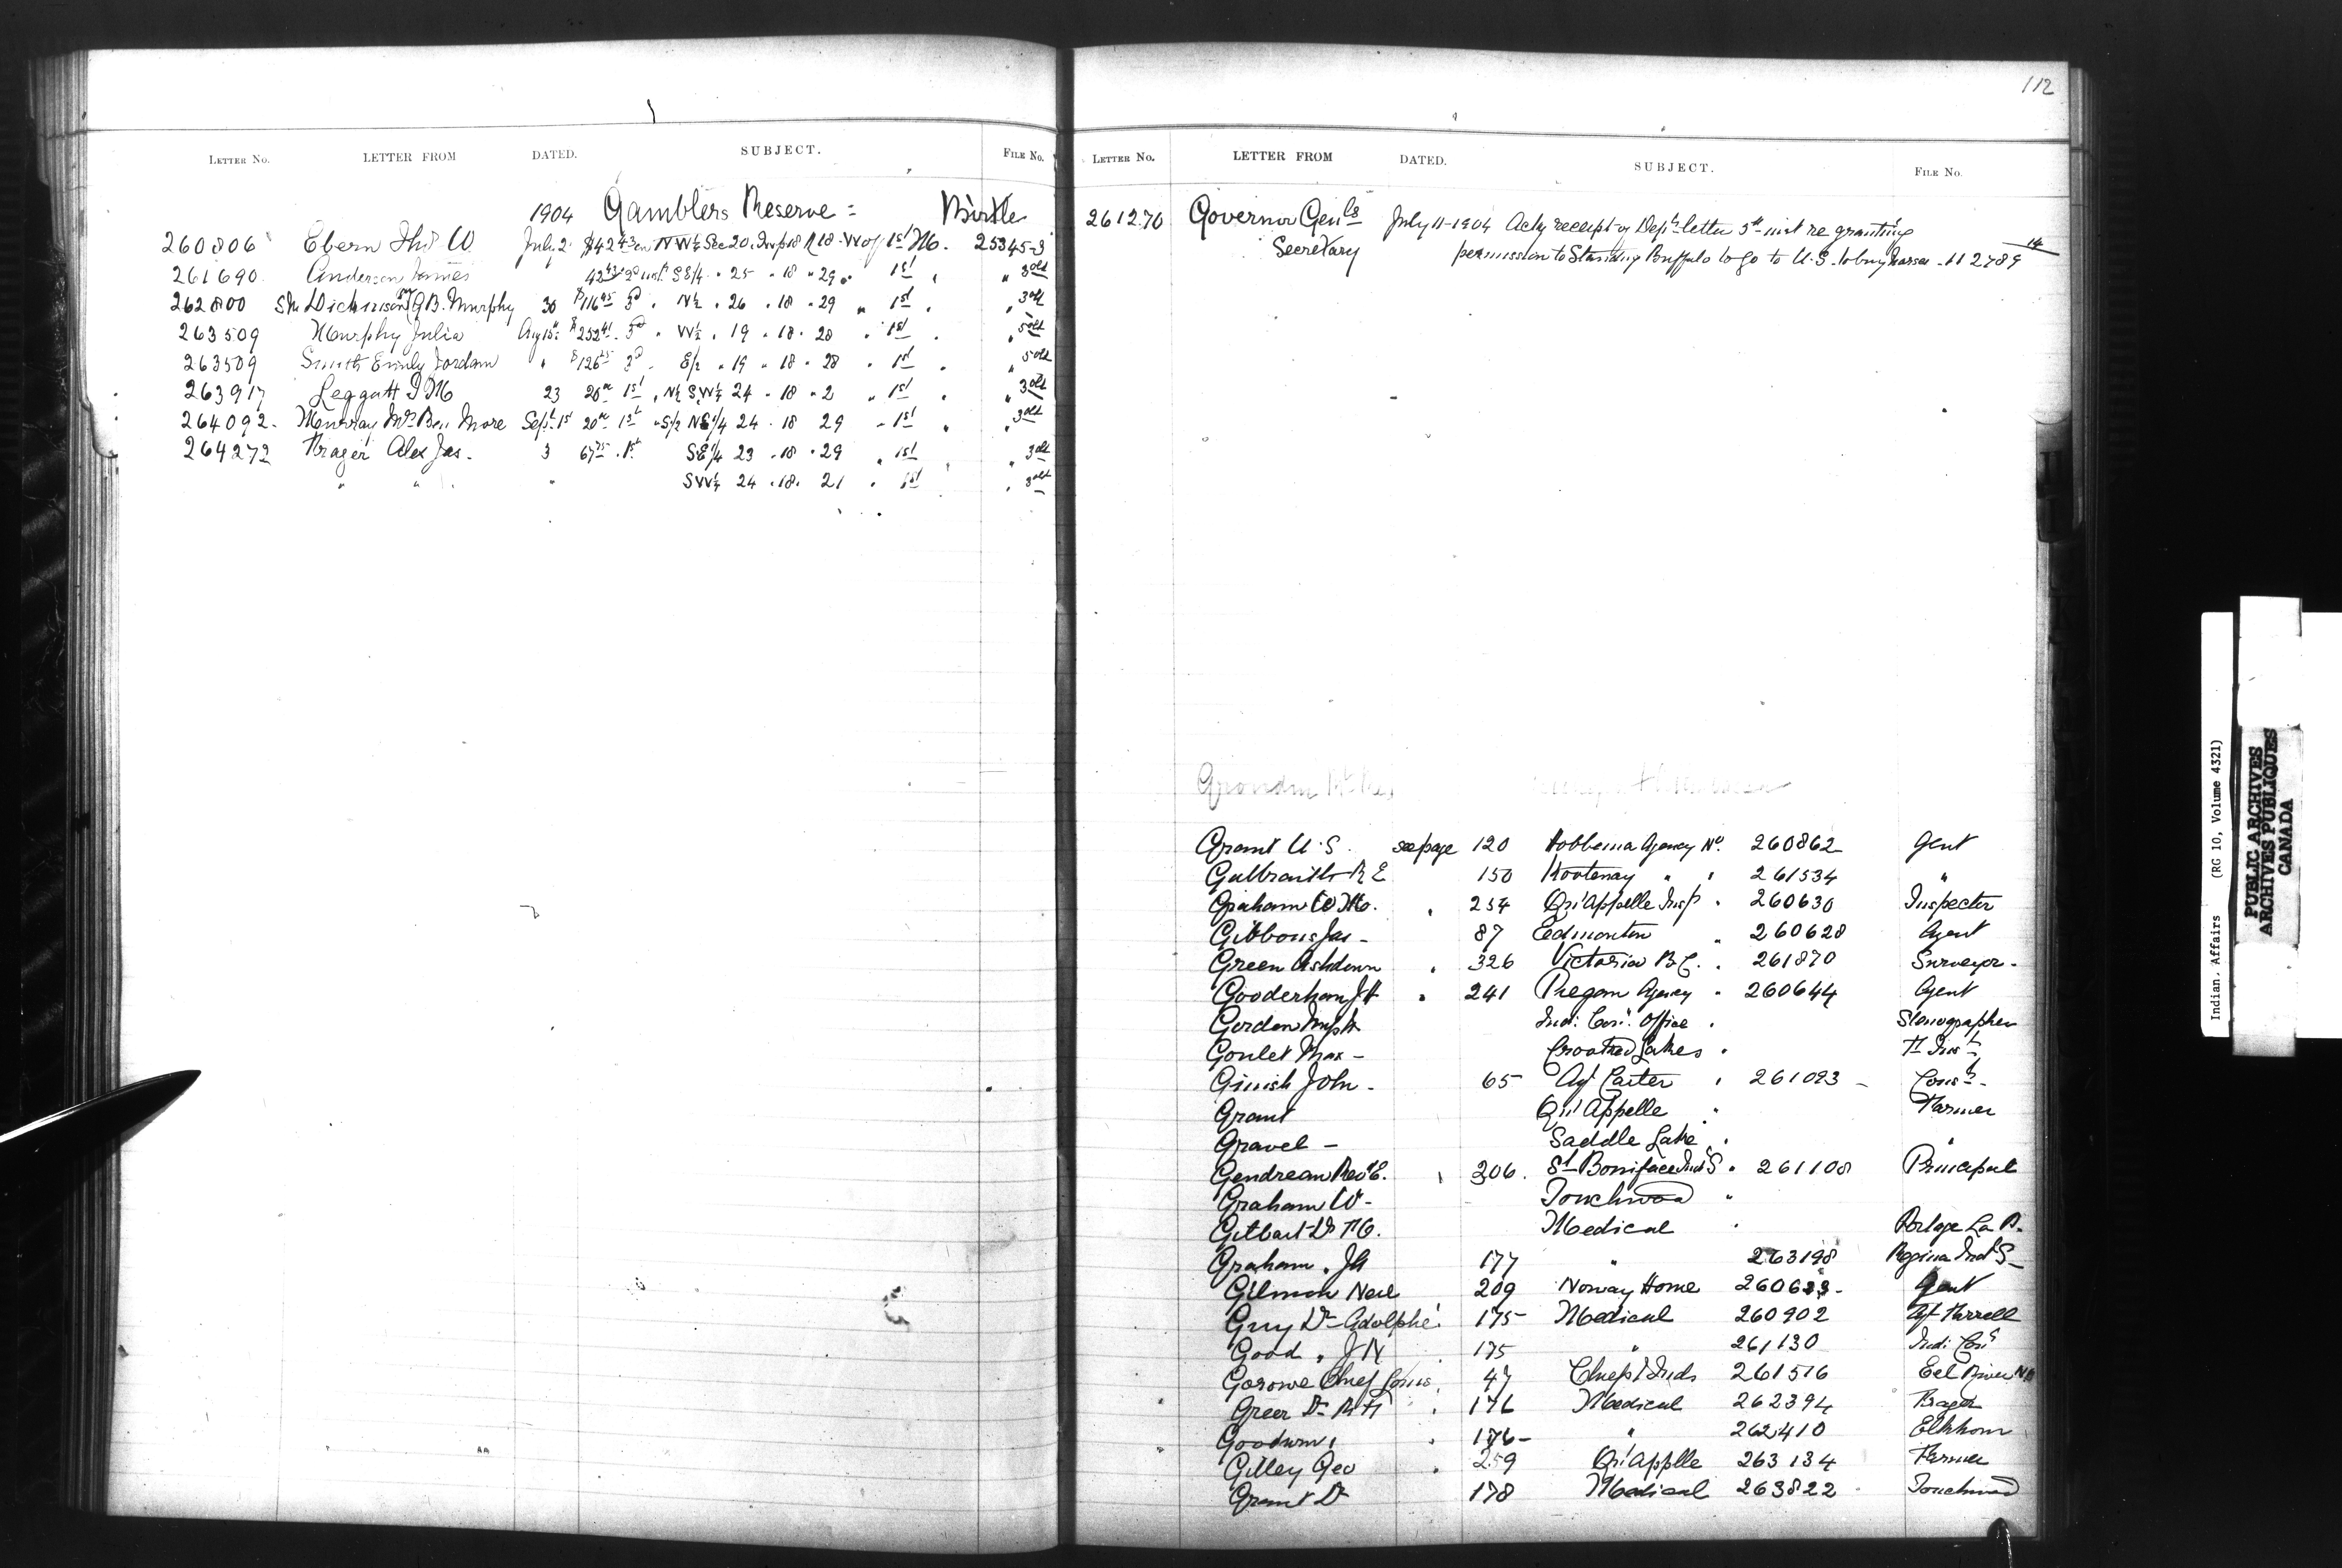 LETTER NO. LETTER FROM DATED. SUBJECT. FILE NO.
1904 Gamblers Reserve = Birtle
260806 Ebern Thos W July 2 $42 43 on NW¼ Sec 20. Twp 18 R 18 W of 1st M. 25345-3
261690. Anderson James 42 43 2d inst. SE/4 " 25 " 18 " 29 " 1st " " 3 old
262800 Dickinson per G.B. Murphy 30 $116 45 3d " N½ " 26 " 18 " 29 " 1st " " 3 old
263509 Murphy Julia Aug 15 $252 41 3d " W½ " 19 " 18 " 28 " 1st " " 5 old
263509 Smith Emily Jordan " $126 45 3d " E/2 " 19 " 18 " 28 " 1st " " 5 old
263917 Leggatt 23 20 00 1st " N½ SW¼ 24 " 18 " 2 " 1st " " 3 old
264092. Murray Mrs Ben More Sept 1st 20 00 1st " S/2 NE/4 24 " 18 29 " 1st " " 3 old
264272 Alex Jas. 3 67 75 " 1st SE/4 23 " 18 " 29 " 1st " 3 old
" " " SW¼ 24 " 18 " 21 " 1st " 3 old
112
LETTER NO. LETTER FROM DATED. SUBJECT. FILE NO.
261270 Governor Genls July 11-1904 Ackg receipt of Dept letter 5th inst re granting
Secretary permission to Standing Buffalo to go to U.S. to buy horses 112789 14
Grant U.S. see page 120 Hobbema Agency No. 260862 Agent
Galbraith R E 150 Kootenay " " 261534 "
Graham W M. " 254 Qu'Appelle Insp " 260630 Inspector
Gibbons Jas - 87 Edmonton " 260628 Agent
Green Ashdown " 326 Victoria B.C. " 261870 Surveyor.
Gooderham J H " 241 Piegan Agency " 260644 Agent
Gordon Ind: Com. Office " Stenographer
Goulet Max - Crooked Lakes "
John - 65 Agt Carter " 261093 - Const.
Grant Qu'Appelle " Farmer
Gravel - Saddle Lake " "
Gendreau Revd E. " 206. St. Boniface Ind S " 261108 Principal
Graham W - Touchwood "
Dr Medical " Portage La P.
Graham " J A 177 " 263198 Regina Ind S -
Neil 209 Norway House Agent
Guy Dr Adolphe 175 Medical 260902 Agt Farrell
Good " J N 175 " 261130 Ind: Com
Chief Louis 47 Chiefs & Inds 261516 Eel River NB
Greer Dr " 176 Medical 262394
Goodwin " " 176 - " 262410 Elkhorn
Gilley Geo " 259 Qu'Applle 263134 Farmer
Grant Dr 178 Medical 263822 Touchwood
Indian. Affairs (RG 10, Volume 4321)
PUBLIC ARCHIVES
ARCHIVES PUBLIQUES
CANADA